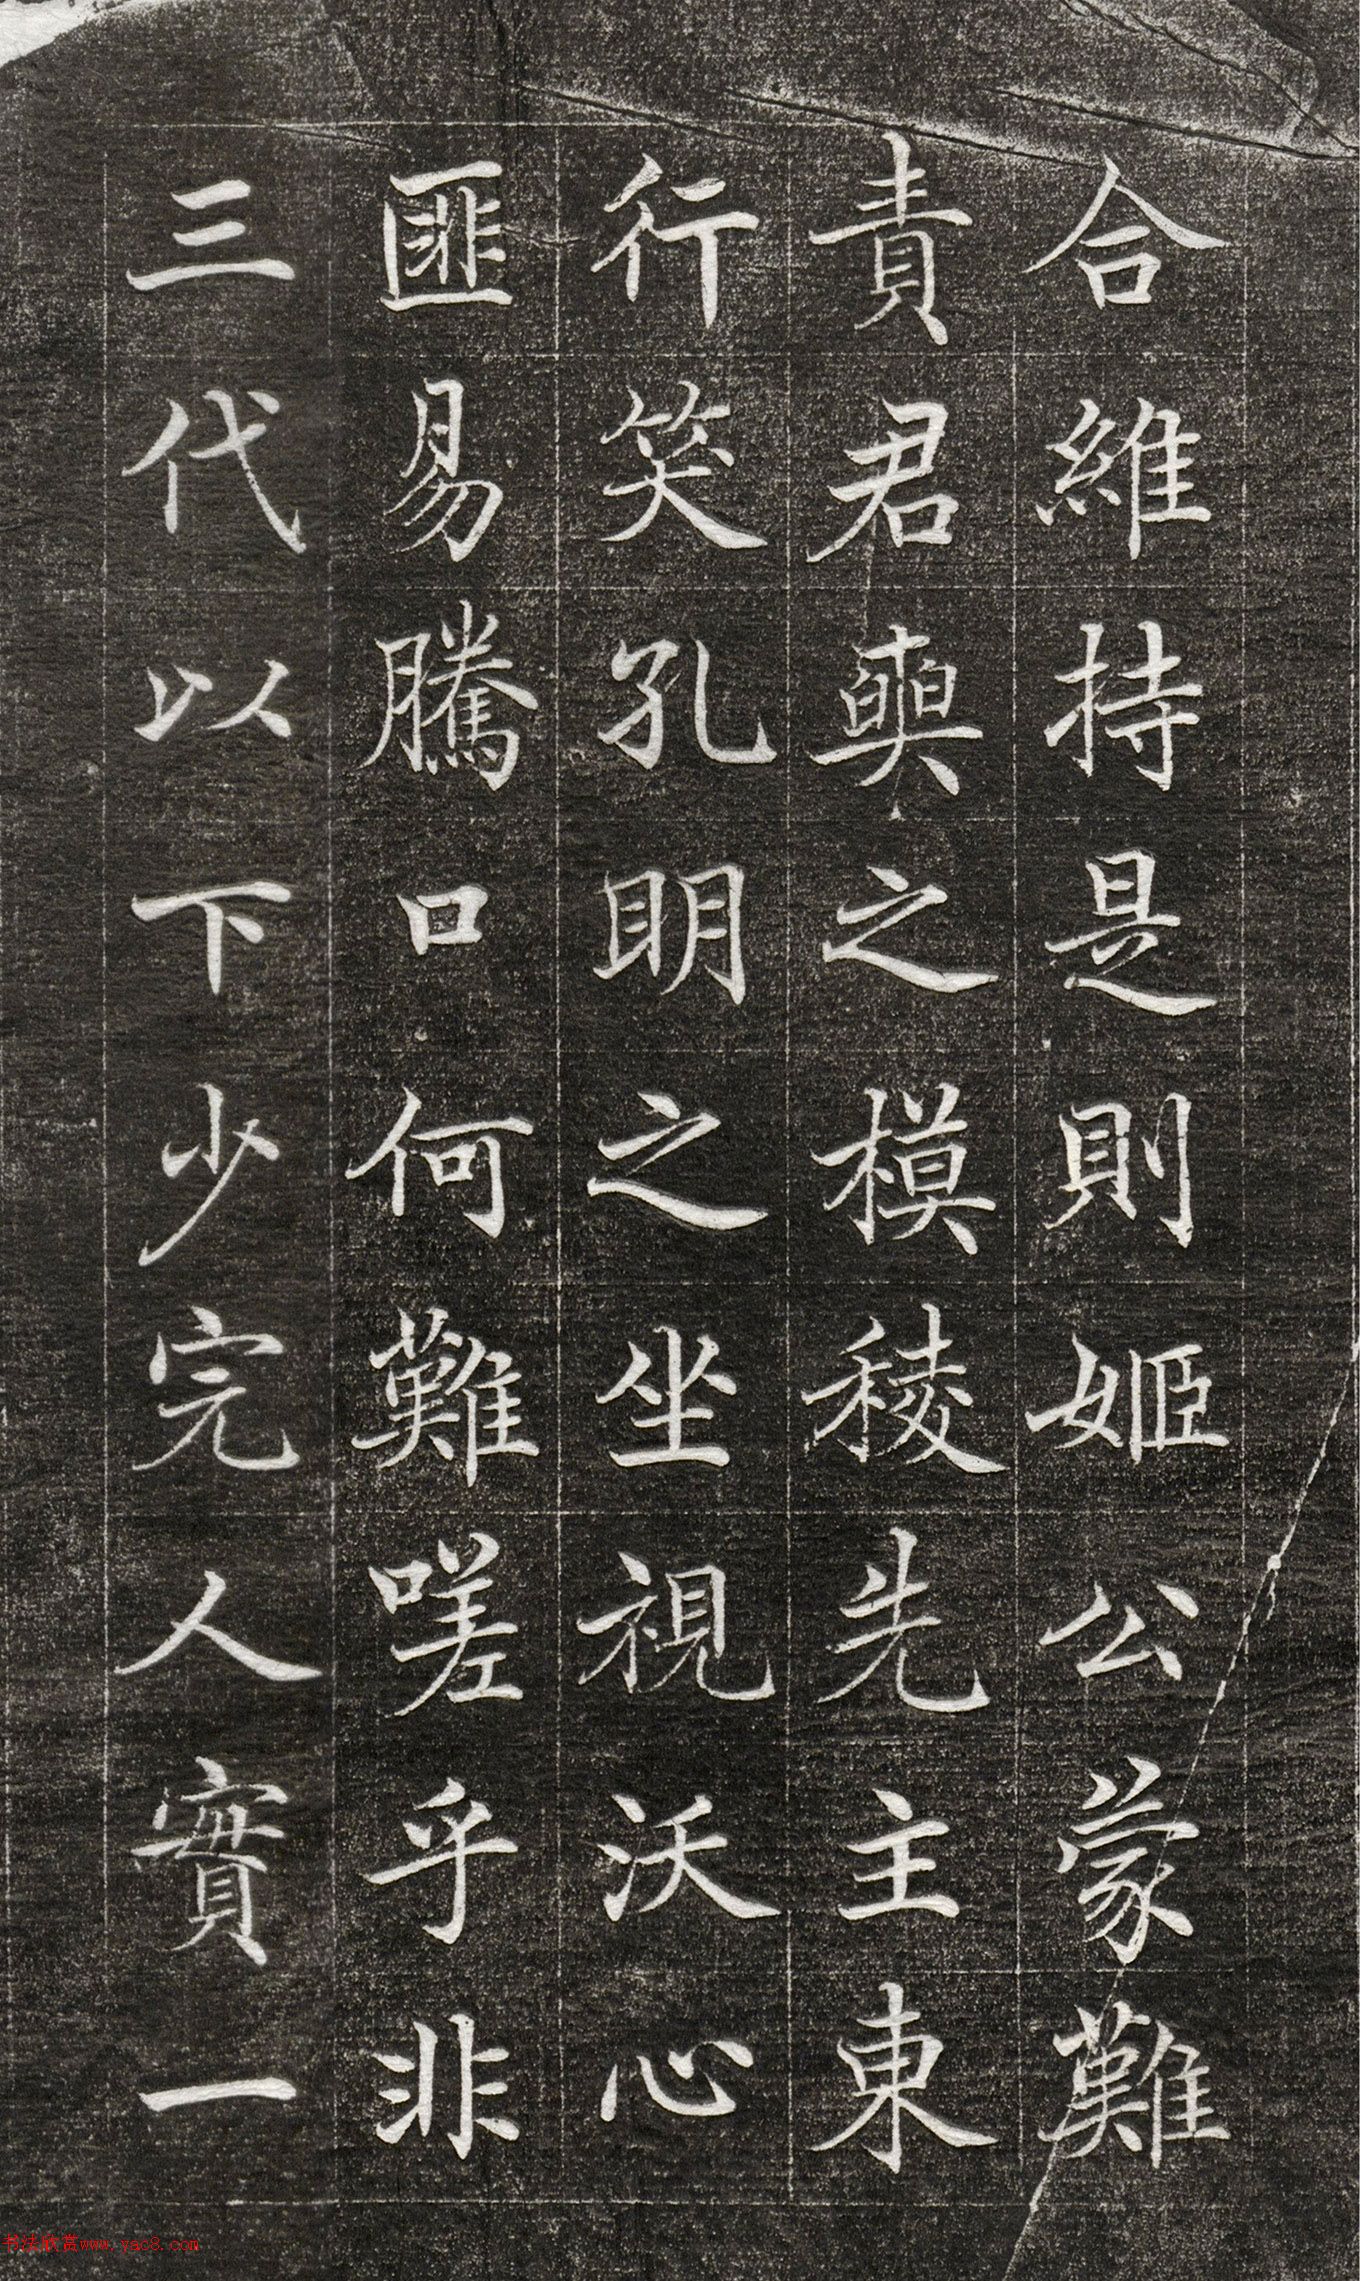 合維持是則姬公蒙難
責君奭之模稜先主東
行笑孔明之坐視沃心
匪易騰口何難嗟乎非
三代以下少完人實一
书法欣赏www.yac8.com